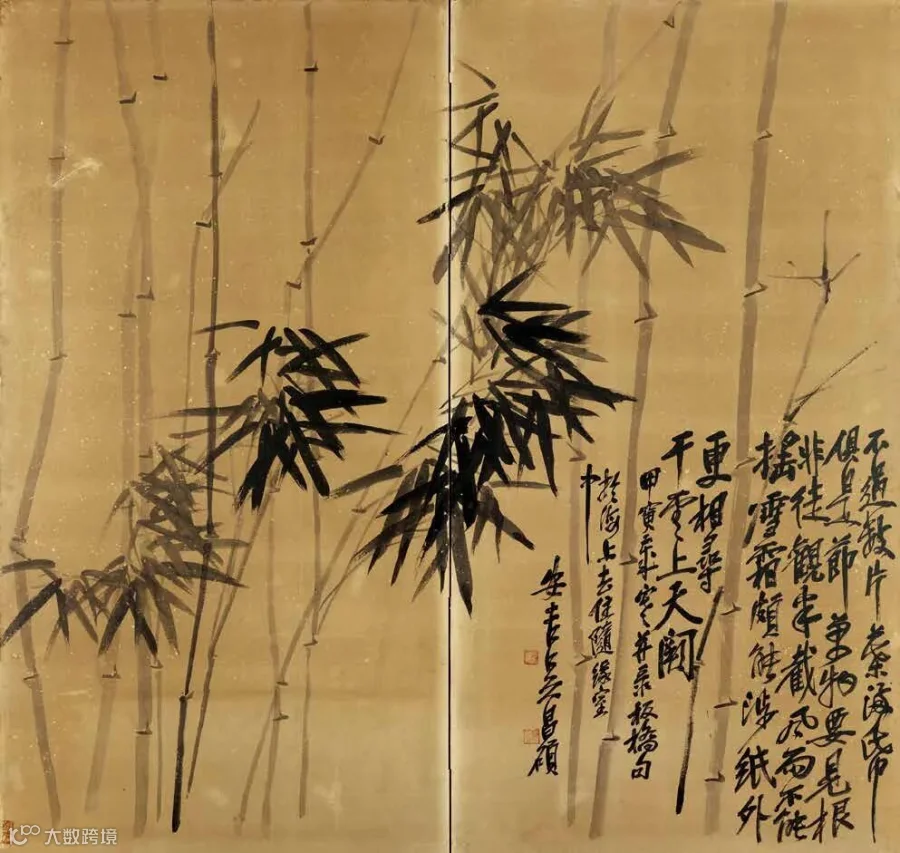 不過數片葉滿紙
俱是節萬物要見根
非徒觀半截風雨不能
搖雪霜頗能涉紙外
更相尋
干雲上天闕
甲寅歲寒并录板橋句
於海上去住隨緣室
中
安吉吳昌碩
大数跨境